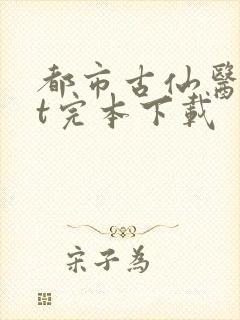 都市古仙醫
t完本下載
宋子為